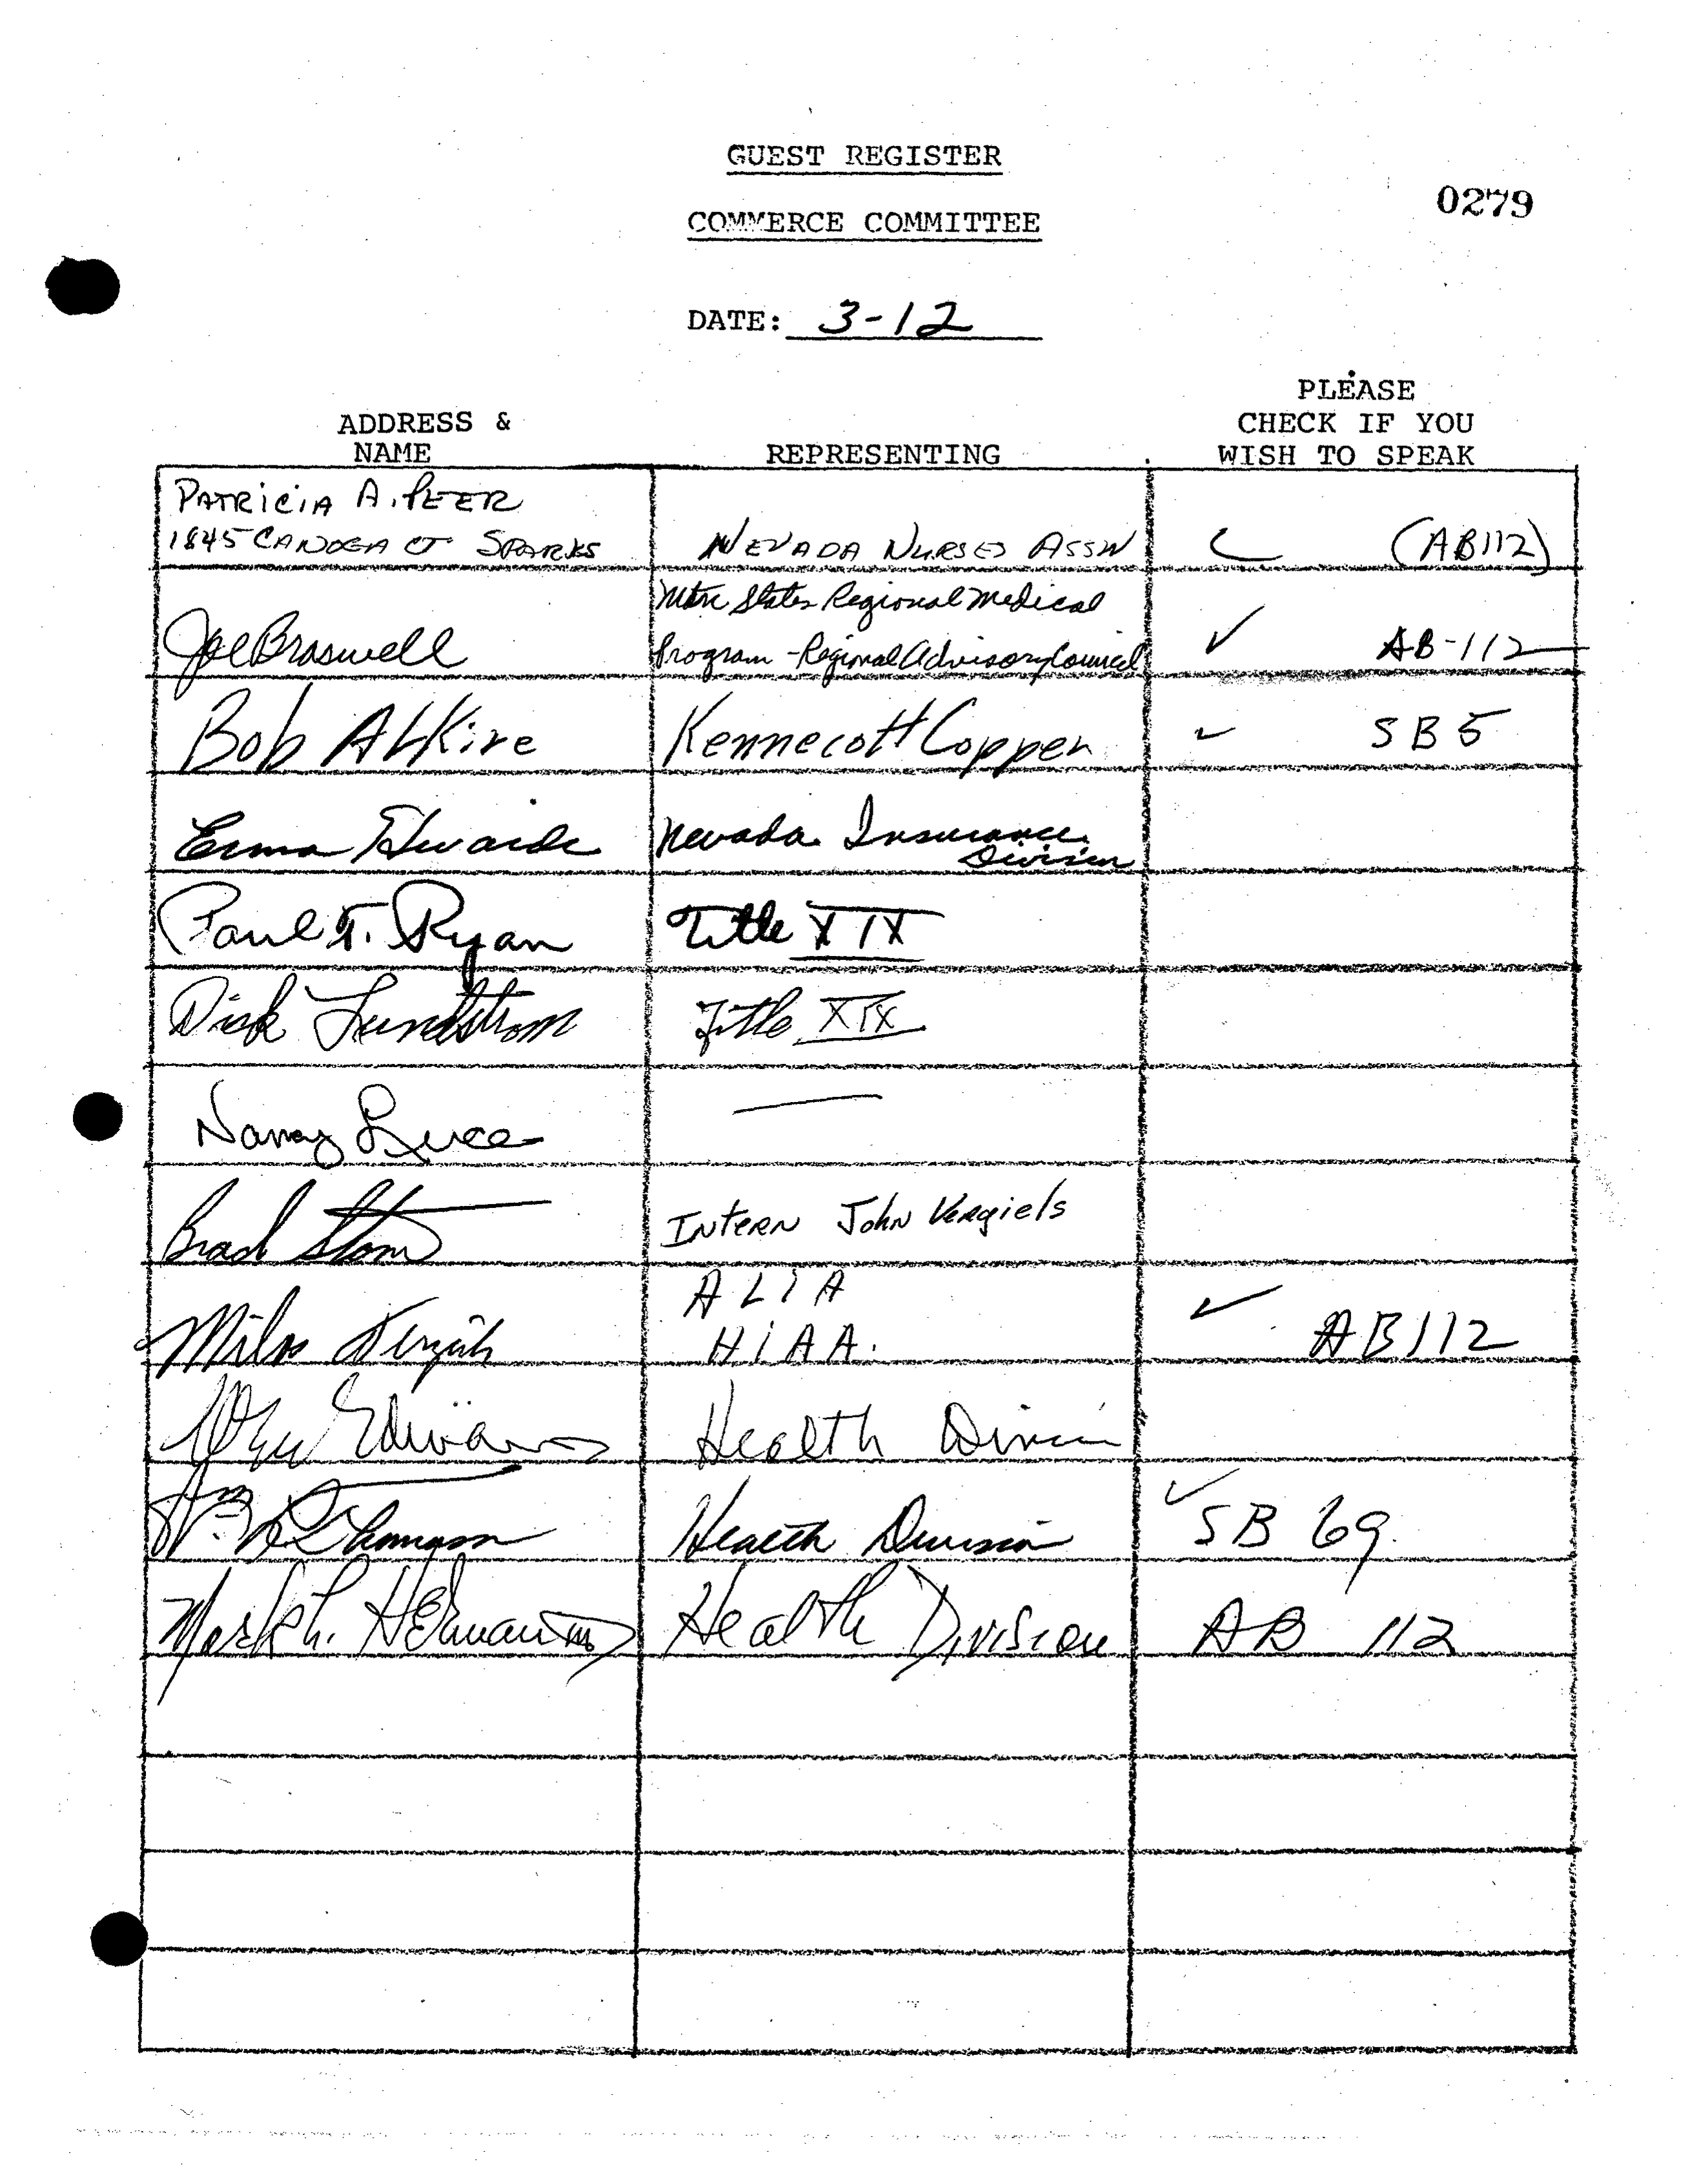 GUEST REGISTER
0279
COMMERCE COMMITTEE
DATE: 3-12
ADDRESS &
NAME
REPRESENTING
PLEASE
CHECK IF YOU
WISH TO SPEAK
PATRICIA A. PEER
1845 CANOGA CT SPARKS
NEVADA NURSES ASSN
(AB112)
Joe Braswell
Mtn States Regional Medical
Program - Regional Advisory Council
✓ AB-112
Bob Alkire
Kennecott Copper
✓ SB 5
Erma Edwards
Nevada Insurance
Division
Paul T. Ryan
Title XIX
Dick Lundstrom
Title XIX
Nancy Luce
Brad Stone
INTERN John Vergiels
ALIA
HIAA.
Milos Terzich
✓ AB112
Edwards
Health
Health Division
✓
SB 69.
Mark L. Herman
Health Division
AB 112